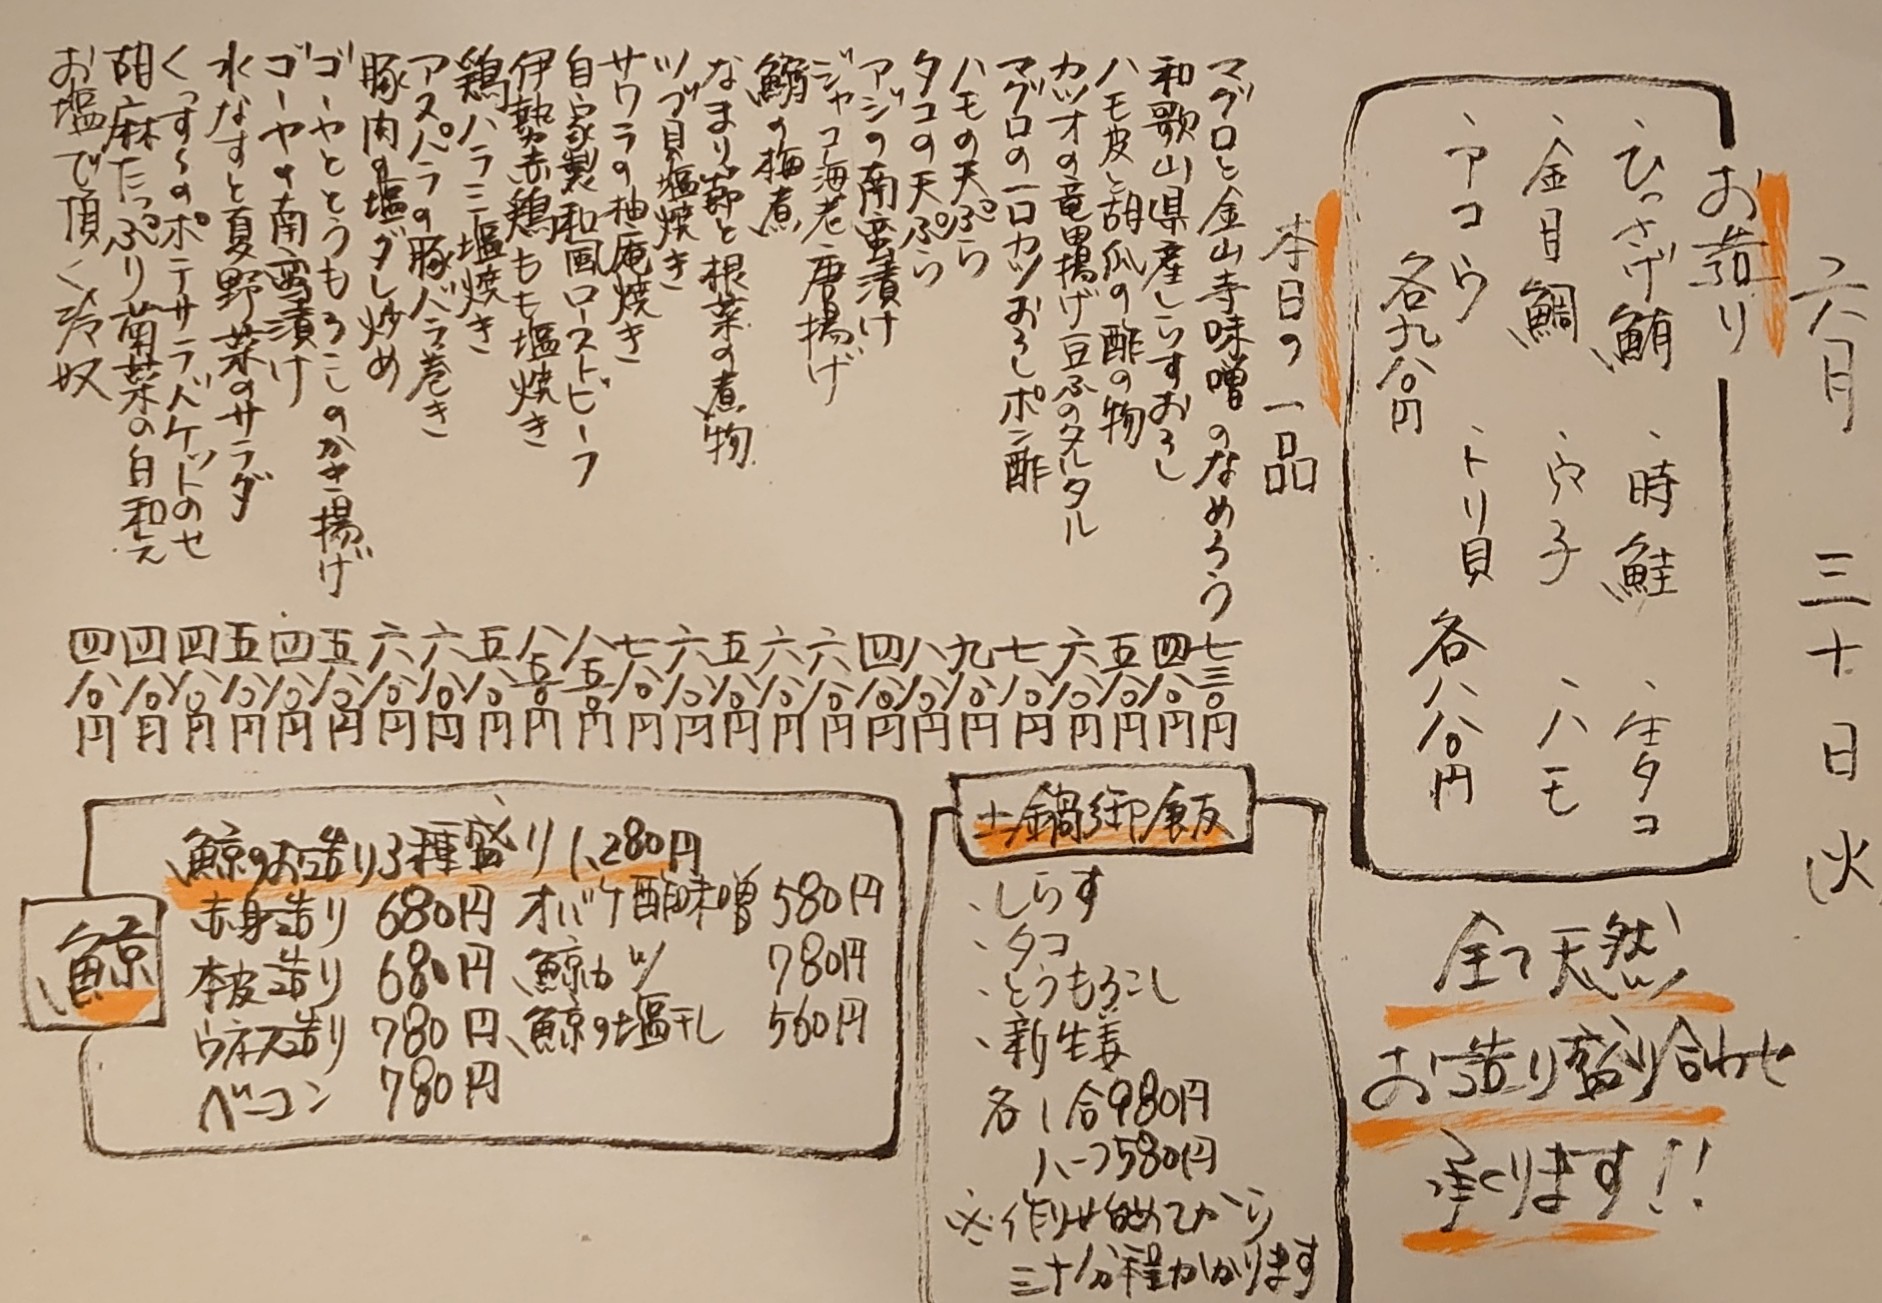 六月 三十日 火
お造り
、ひっさげ鮪 、時鮭 、生タコ
、金目鯛 、穴子 、ハモ
、アコウ 、トリ貝
各九八〇円 各八八〇円
全て天然
お造り盛り合わせ
承ります!!
本日の一品
マグロと金山寺味噌のなめろう 七三〇円
和歌山県産しらすおろし 四八〇円
ハモ皮と胡瓜の酢の物 五八〇円
カツオの竜田揚げ豆ふのタルタル 六八〇円
マグロの一口カツおろしポン酢 七八〇円
ハモの天ぷら 九八〇円
タコの天ぷら 八八〇円
アジの南蛮漬け 四八〇円
ジャコ海老唐揚げ 六八〇円
鰯の梅煮 六八〇円
なまり節と根菜の煮物 五八〇円
ツブ貝塩焼き 六八〇円
サワラの柚庵焼き 七八〇円
自家製和風ローストビーフ 八五〇円
伊勢赤鶏もも塩焼き 八五〇円
鶏ハラミ塩焼き 五八〇円
アスパラの豚バラ巻き 六八〇円
豚肉の塩ダレ炒め 六八〇円
ゴーヤととうもろこしのかき揚げ 五八〇円
ゴーヤの南蛮漬け 四八〇円
水なすと夏野菜のサラダ 五八〇円
ポテサラバケットのせ 四八〇円
胡麻たっぷり菊菜の白和え 四八〇円
お塩で頂く冷奴 四八〇円
土鍋御飯
、しらす
、タコ
、とうもろこし
、新生姜
各1合980円
ハーフ580円
※作り始めてから
三十分程かかります
鯨
鯨のお造り3種盛り 1,280円
赤身造り 680円 オバケ酢味噌 580円
本皮造り 680円 鯨カツ 780円
ウネス造り 780円 鯨の塩干し 560円
ベーコン 780円